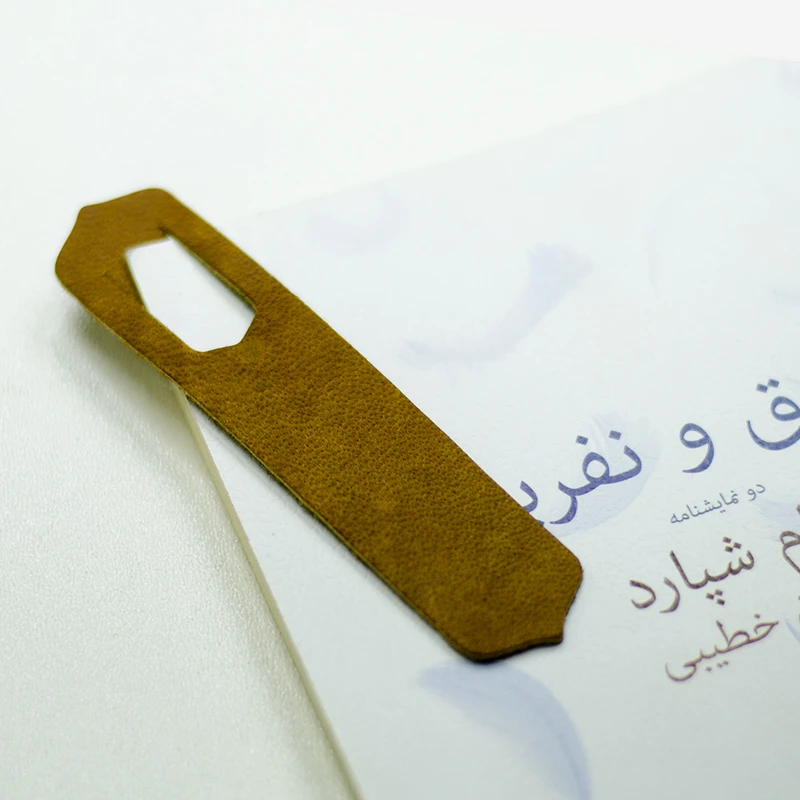 ق و نفری
دو نمایشنامه
م شپارد
خطیبی